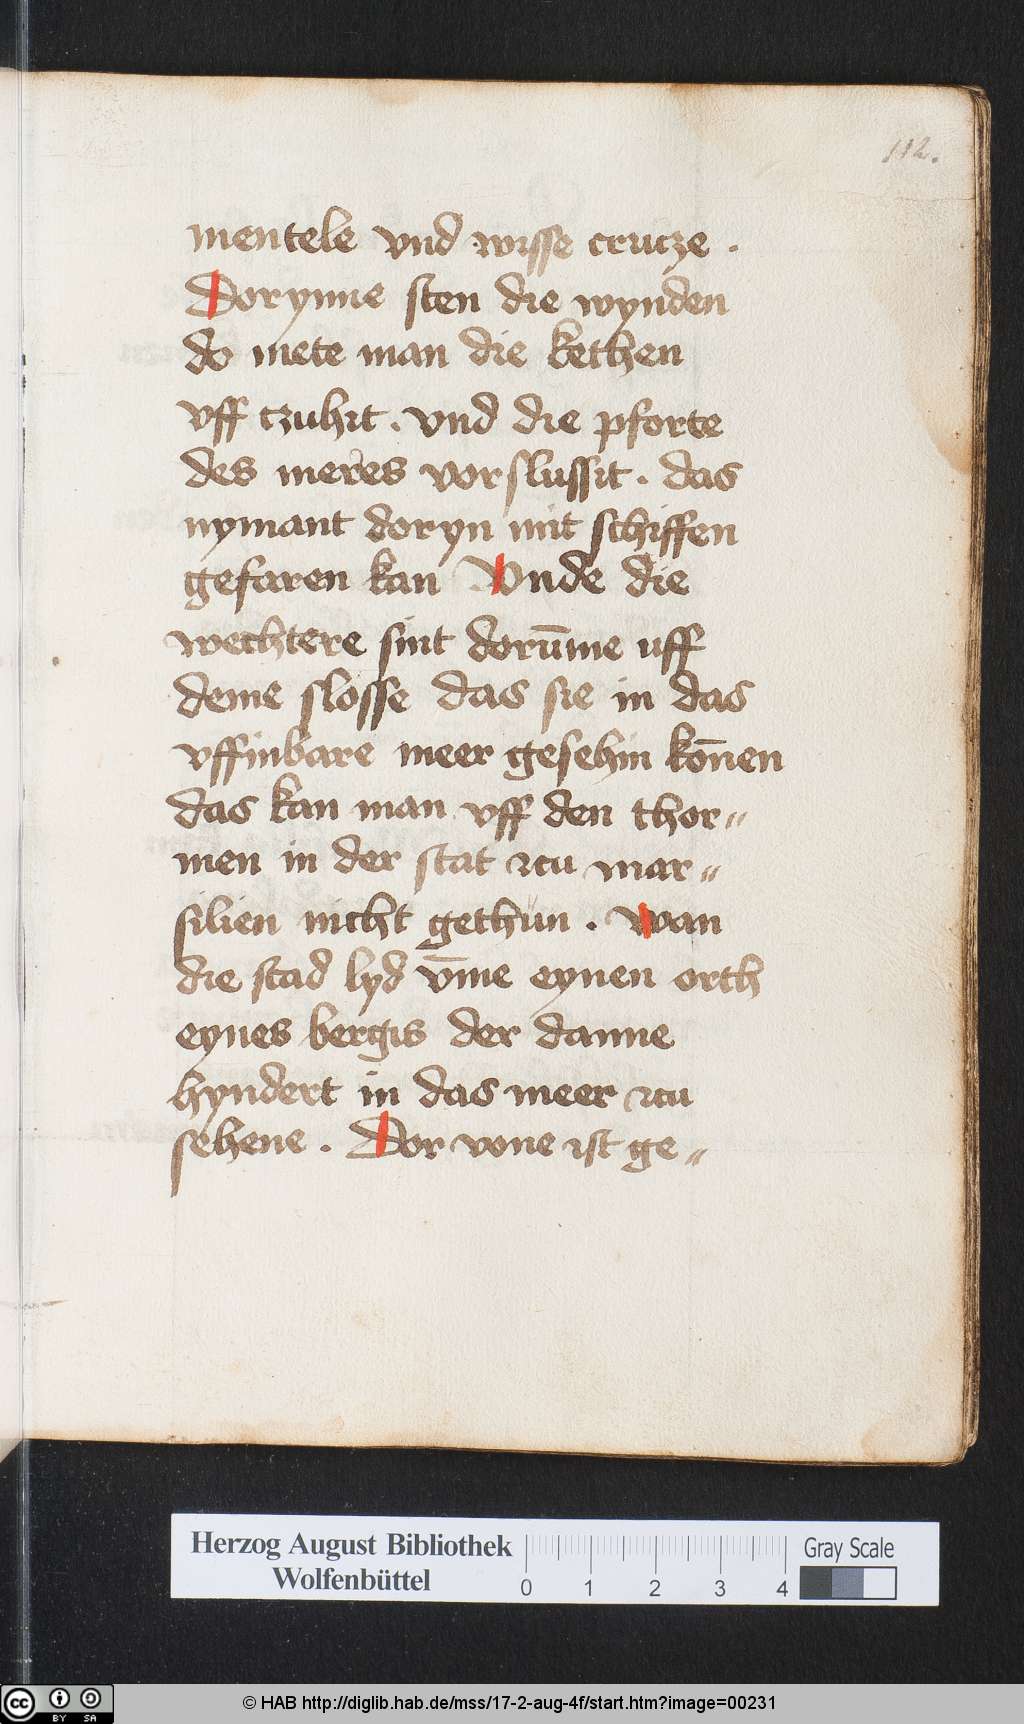 112.
mentele vnd wisse crucze .
Dorynne sten die wynden
do mete man die kethen
vff tzuhit . vnd die pforte
des meres vorslussit . das
nymant doryn mit schiffen
gefaren kan . Vnde die
wechtere sint dorūme uff
deme slosse das sie in das
vffinbare meer gesehin kōnen
das kan man vff den thor〃
men in der stat zcu mar〃
silien nicht gethun . wan
die stad lyd v̄me eynen orth
eynes bergis der danne
hyndert in das meer zcu
sehene . Dor vone ist ge〃
Herzog August Bibliothek
Wolfenbüttel
0 1 2 3 4
Gray Scale
cc BY SA
© HAB http://diglib.hab.de/mss/17-2-aug-4f/start.htm?image=00231